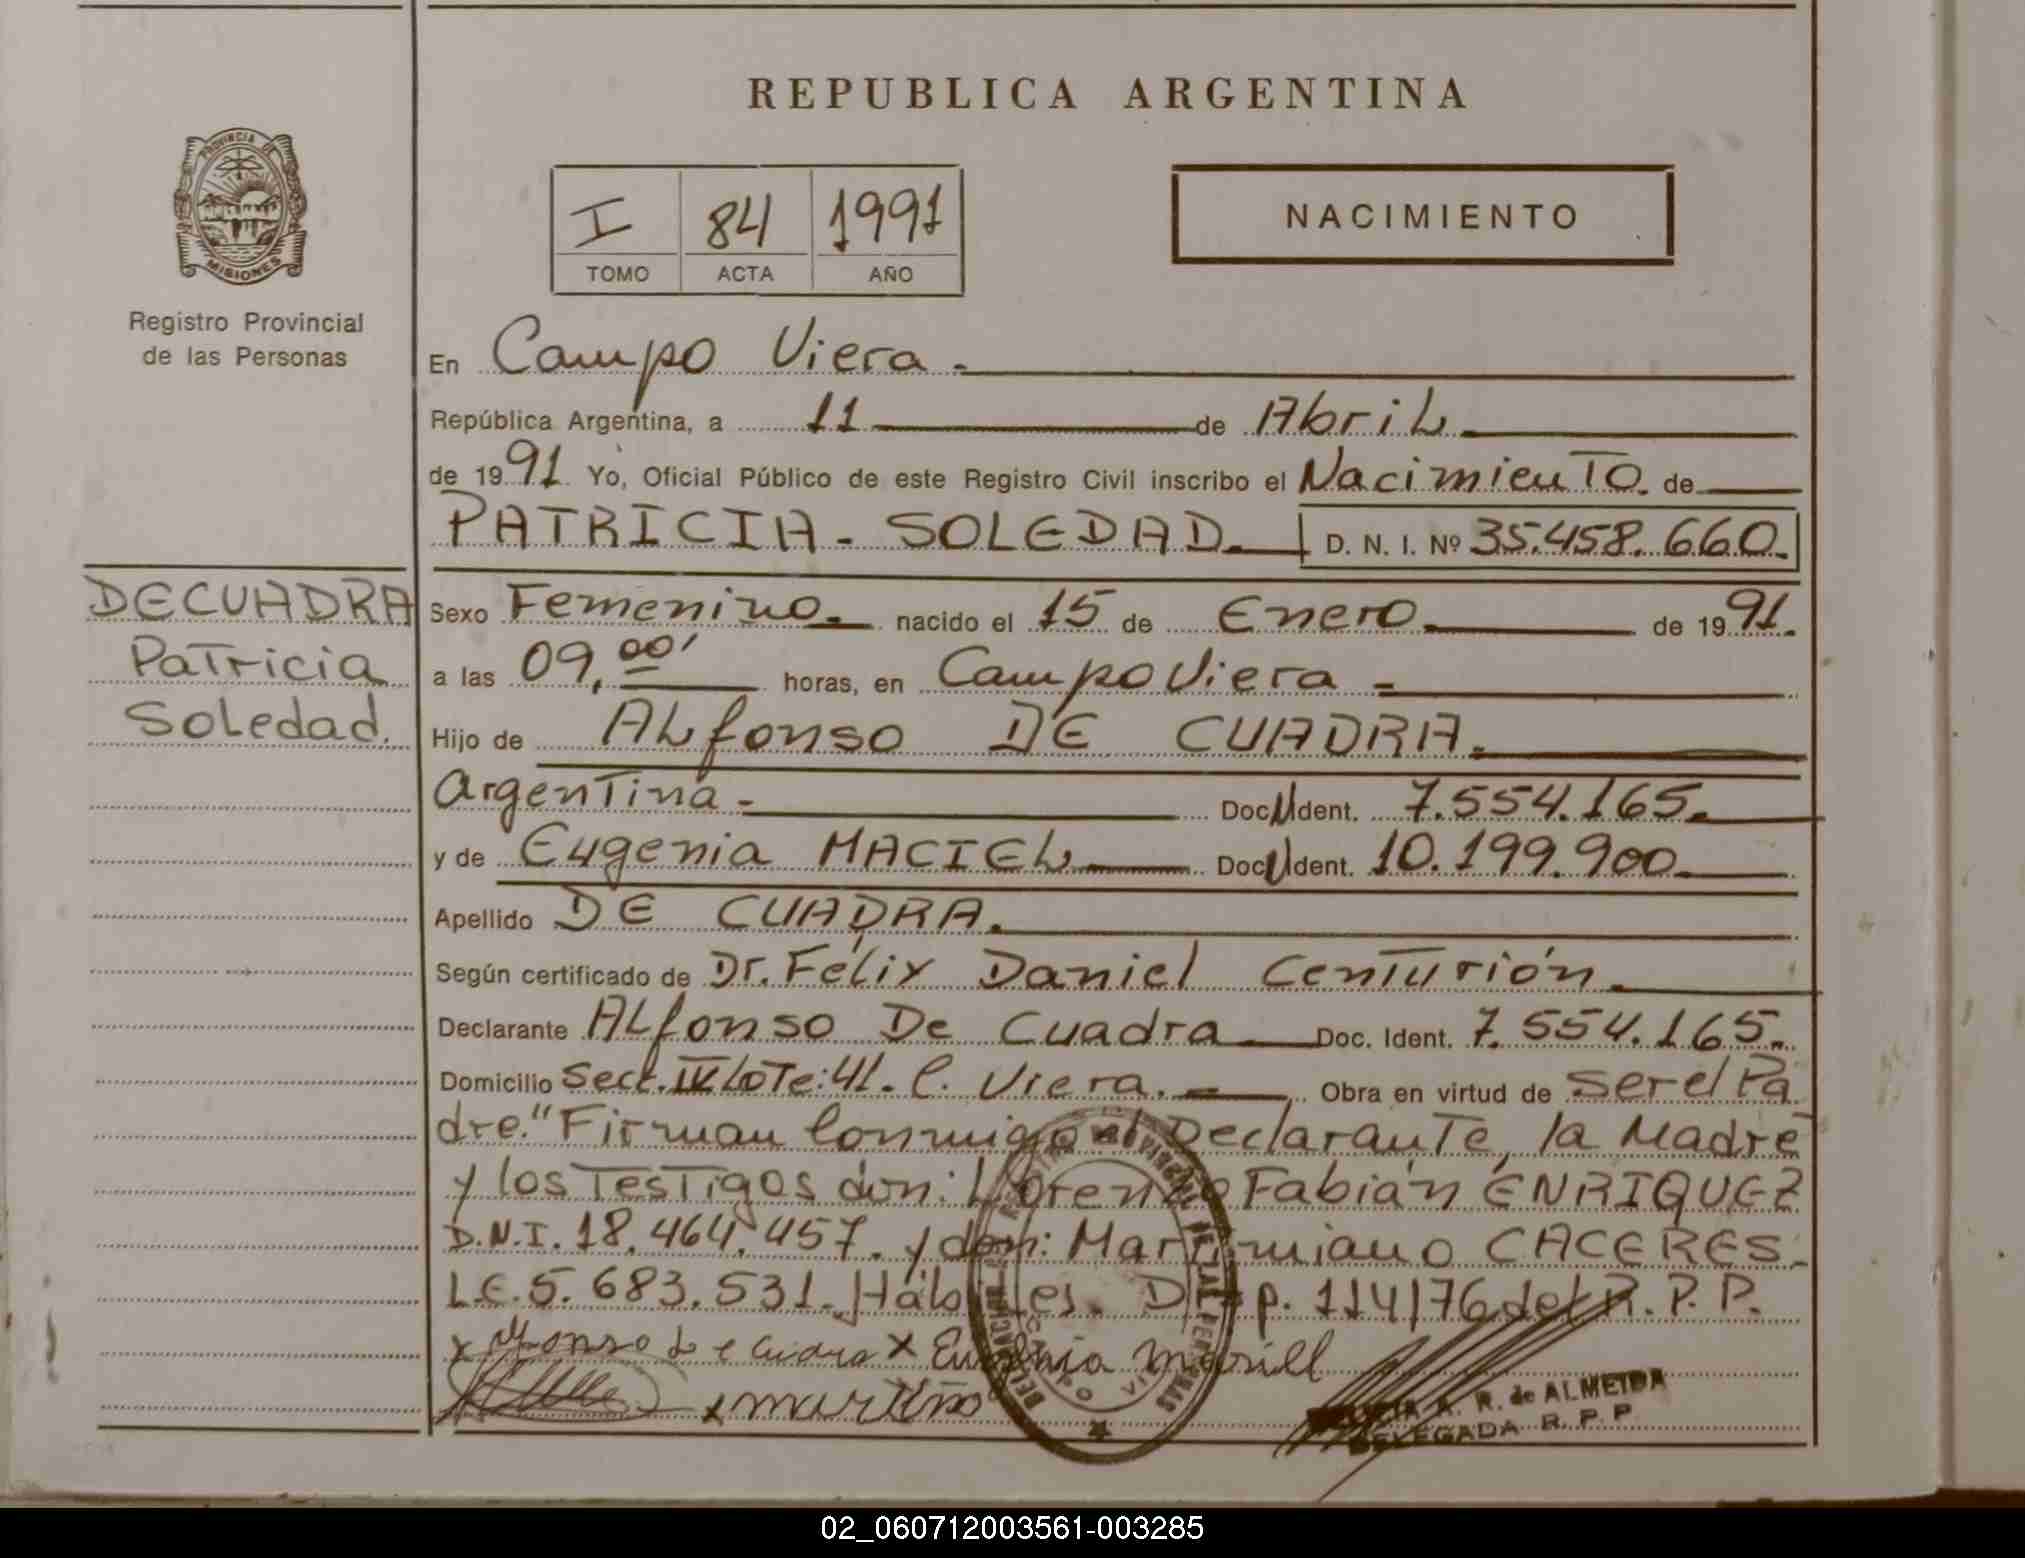 REPUBLICA ARGENTINA
PROVINCIA DE
MISIONES
Registro Provincial
de las Personas
I 84 1991
TOMO ACTA AÑO
NACIMIENTO
En Campo Viera.
República Argentina, a 11 de Abril
de 1991. Yo, Oficial Público de este Registro Civil inscribo el Nacimiento. de
PATRICIA - SOLEDAD. D. N. I. Nº 35.458.660.
DECUADRA
Patricia
Soledad.
Sexo Femenino. nacido el 15 de Enero de 1991.
a las 09,00' horas, en Campo Viera -
Hijo de Alfonso DE CUADRA.
Argentina - Doc. Ident. 7.554.165.
y de Eugenia MACIEL Doc. Ident. 10.199.900.
Apellido DE CUADRA.
Según certificado de Dr. Félix Daniel Centurión.
Declarante Alfonso De Cuadra Doc. Ident. 7.554.165.
Domicilio Secc. IV Lote: 41. C. Viera. Obra en virtud de ser el Pa
dre." Firman Conmigo el Declarante, la Madre
y los Testigos don: Lorenzo Fabián ENRIQUEZ
D.N.I. 18.464.457. y don: Martimiano CACERES
L.E. 5.683.531. Hábiles. Disp. 114/76 del R.P.P.
x Alfonso de cuadra x Eugenia
x
A. R. de ALMEIDA
DELEGADA R. P. P.
02_060712003561-003285